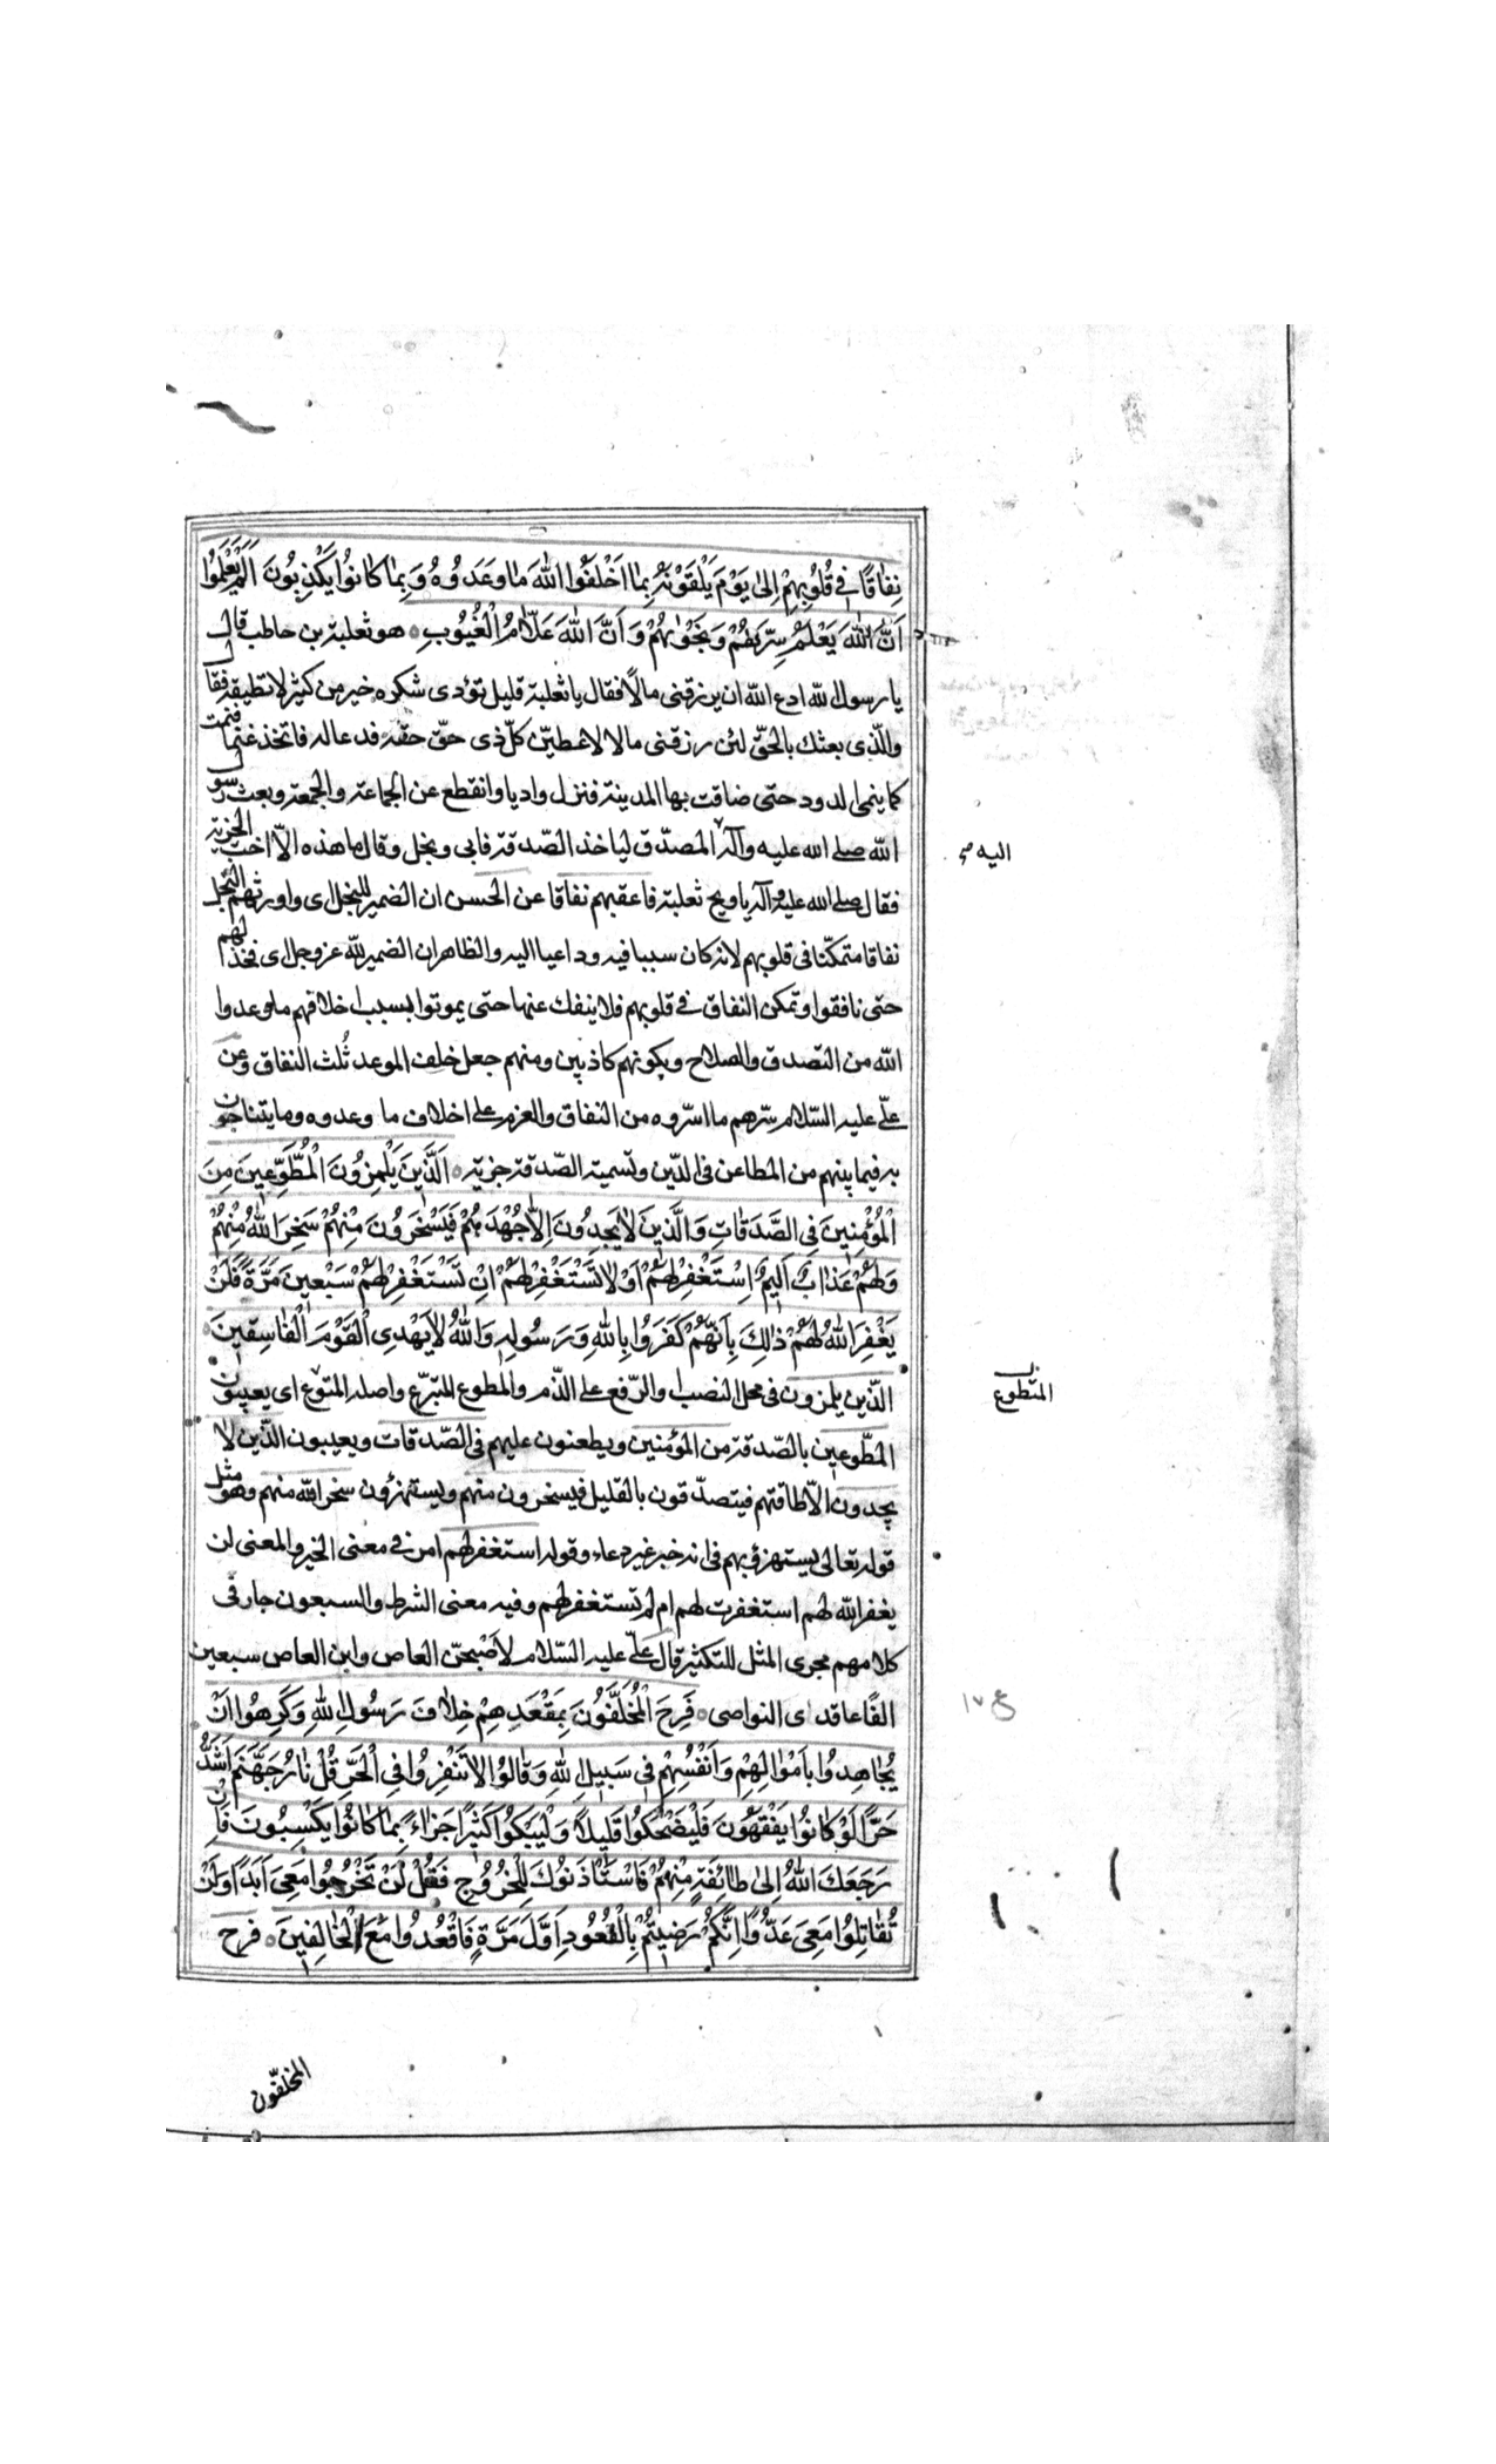 نِفَاقًا فِي قُلُوبِهِمْ اِلٰى يَوْمَ يَلْقَوْنَهُ بِمَا اَخْلَفُوا اللّٰهَ مَا وَعَدُوهُ وَبِمَا كَانُوا يَكْذِبُونَ اَلَمْ يَعْلَمُوا
اَنَّ اللّٰهَ يَعْلَمُ سِرَّهُمْ وَنَجْوٰيهُمْ وَاَنَّ اللّٰهَ عَلَّامُ الْغُيُوبِ ه هو ثعلبة بن حاطب قال
يا رسول اللّه ادع اللّه ان يرزقنى مالًا فقال يا ثعلبة قليل تؤدى شكره خير من كثير لا تطيقه فقال
والّذى بعثك بالحقّ لئن رزقنى مالا لاعطينّ كلّ ذى حقّ حقه فدعا له فاتخذ غنما فنمت
كما ينمى الدود حتى ضاقت بها المدينة فنزل واديا وانقطع عن الجماعة والجمعة وبعث رسول
اللّه صلى الله عليه وآله المصدّق لياخذ الصّدقة فابى وبخل وقال ما هذه الّا اخت الجزية
اليه صح
فقال صلى الله عليه وآله يا ويح ثعلبة فاعقبهم نفاقا عن الحسن ان الضمير للبخل اى واورثهم البخل
نفاقا متمكّنا فى قلوبهم لانه كان سببا فيه وداعيا اليه والظاهر ان الضمير للّه عز وجل اى فخذلهم
حتى نافقوا وتمكن النفاق فى قلوبهم فلا ينفك عنها حتى يموتوا بسبب اخلافهم ما وعدوا
اللّه من التصدق والصلاح وبكونهم كاذبين ومنهم جعل خلف الموعد ثُلث النفاق وعن
علّى عليه السّلام سرّهم ما اسرّوه من النفاق والعزم على اخلاف ما وعدوه وما يتناجون
به فيما بينهم من المطاعن فى الدّين وتسمية الصّدقة جزية ه اَلَّذِينَ يَلْمِزُونَ الْمُطَّوِّعِينَ مِنَ
الْمُؤْمِنِينَ فِى الصَّدَقَاتِ وَالَّذِينَ لَا يَجِدُونَ اِلَّا جُهْدَهُمْ فَيَسْخَرُونَ مِنْهُمْ سَخِرَ اللّٰهُ مِنْهُمْ
وَلَهُمْ عَذَابٌ اَلِيمٌ اِسْتَغْفِرْ لَهُمْ اَوْ لَا تَسْتَغْفِرْ لَهُمْ اِنْ تَسْتَغْفِرْ لَهُمْ سَبْعِينَ مَرَّةً فَلَنْ
يَغْفِرَ اللّٰهُ لَهُمْ ذٰلِكَ بِاَنَّهُمْ كَفَرُوا بِاللّٰهِ وَرَسُولِهِ وَاللّٰهُ لَا يَهْدِى الْقَوْمَ الْفَاسِقِينَ ه
الّذين يلمزون فى محل النصب او الرّفع على الذّم والمطوع المتبرّع واصله المتوّع اى يعيبون
المتطوع
المطّوعين بالصّدقة من المؤمنين ويطعنون عليهم فى الصّدقات ويعيبون الذّين لا
يجدون الّا طاقتهم فيتصدّقون بالقليل فيسخرون منهم ويستهزؤن سخر اللّه منهم وهو مثل
قوله تعالى يستهزؤ بهم فى انه خبر غير دعاء وقوله استغفر لهم امر فى معنى الخبر والمعنى لن
يغفر اللّه لهم استغفرت لهم ام لم تستغفر لهم وفيه معنى الشرط والسبعون جار فى
كلامهم مجرى المثل للتكثير قال علّى عليه السّلام لاصْبحنّ العاص وابن العاص سبعين
الفًا عاقدى النواصى ه فَرِحَ الْمُخَلَّفُونَ بِمَقْعَدِهِمْ خِلَافَ رَسُولِ اللّٰهِ وَكَرِهُوا اَنْ
ع ١٧
يُجَاهِدُوا بِاَمْوَالِهِمْ وَاَنْفُسِهِمْ فِى سَبِيلِ اللّٰهِ وَقَالُوا لَا تَنْفِرُوا فِى الْحَرِّ قُلْ نَارُ جَهَنَّمَ اَشَدُّ
حَرًّا لَوْ كَانُوا يَفْقَهُونَ فَلْيَضْحَكُوا قَلِيلًا وَلْيَبْكُوا كَثِيرًا جَزَاءً بِمَا كَانُوا يَكْسِبُونَ فَاِنْ
رَجَعَكَ اللّٰهُ اِلٰى طَائِفَةٍ مِنْهُمْ فَاسْتَاْذَنُوكَ لِلْخُرُوجِ فَقُلْ لَنْ تَخْرُجُوا مَعِىَ اَبَدًا وَلَنْ
تُقَاتِلُوا مَعِىَ عَدُوًّا اِنَّكُمْ رَضِيتُمْ بِالْقُعُودِ اَوَّلَ مَرَّةٍ فَاقْعُدُوا مَعَ الْخَالِفِينَ ه فرح
المخلفّون